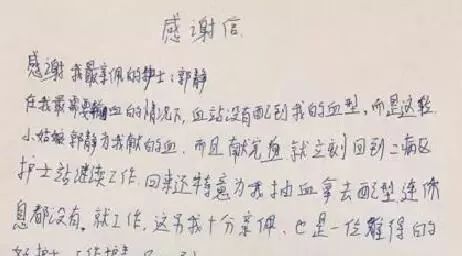 感谢信
感谢我最亲佩的护士:郭静
在我最需要输血的情况下,血站没有配到我的血型,而是这轮
小姑娘郭静为我献的血,而且献完血就立刻回到二病区
护士站继续工作,回来还特意为我抽血拿去配型连休
息都没有,就工作,这另我十分亲佩,也是一位难得的
好护士